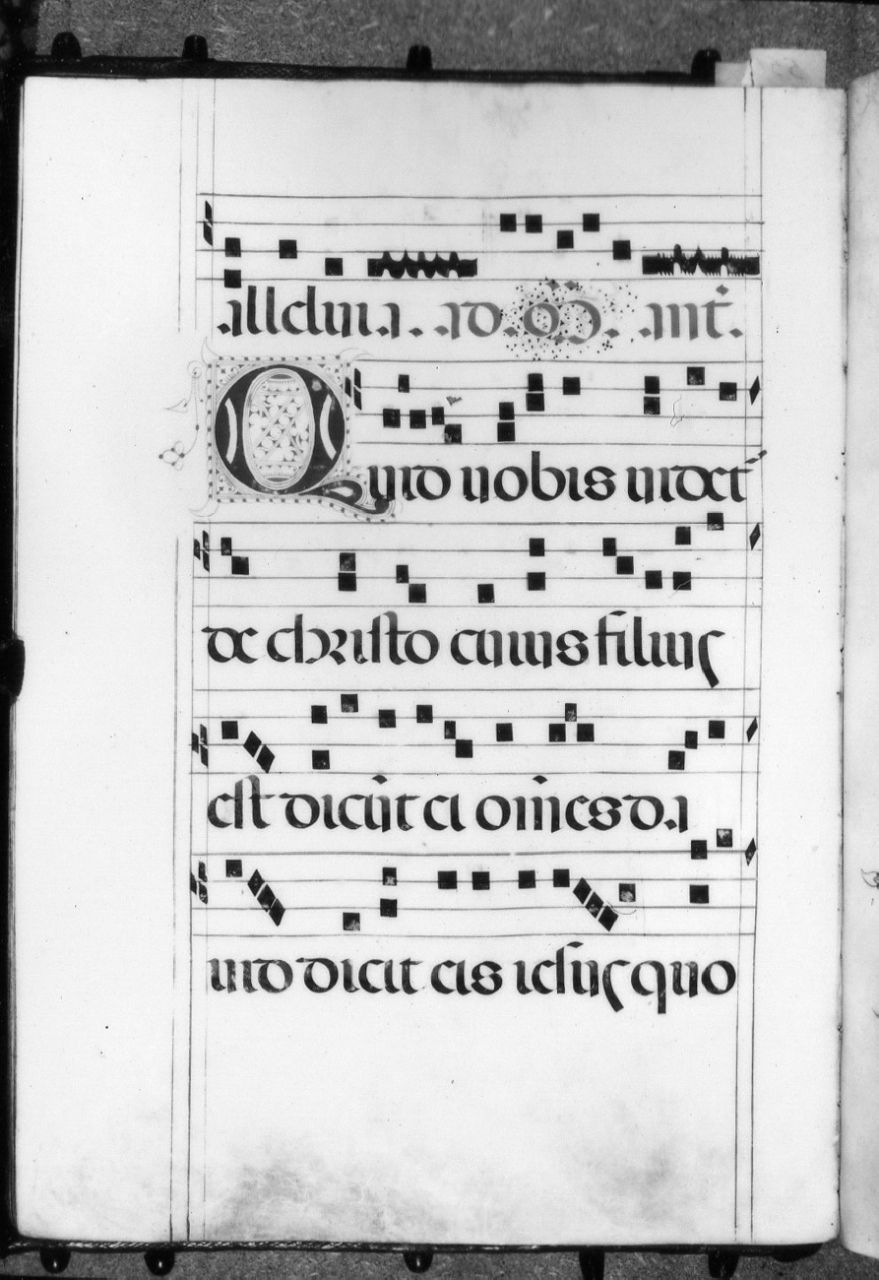 alleluia. ad. ant.
Quid uobis uidet̃
de christo cuius filius
est dicũt ei om̃es da
uid dicit eis ieſus quo